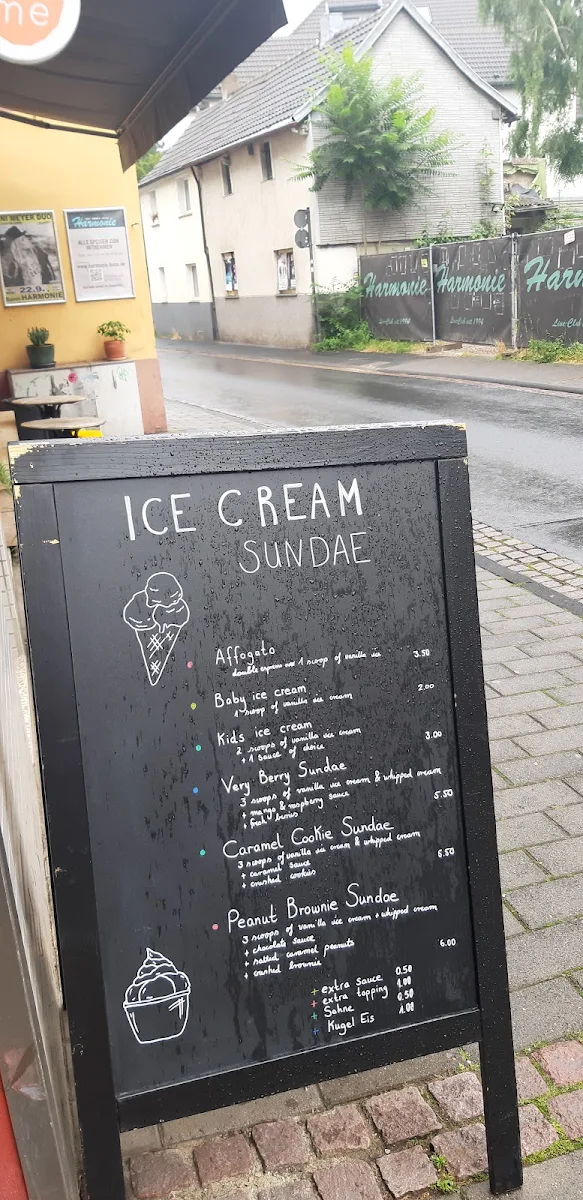 me
NI MEYER DUO
22.9.
HARMONIE
Harmonie
ALLE SPEISEN ZUM
MITNEHMEN
Harmonie Harmonie Harm
Live-Club seit 1994
ICE CREAM
SUNDAE
Affogato
double espresso over 1 scoop of vanilla ice 3.50
Baby ice cream
1 scoop of vanilla ice cream 2.00
Kid's ice cream
2 scoops of vanilla ice cream
+ 1 sauce of choice 3.00
Very Berry Sundae
3 scoops of vanilla ice cream & whipped cream
+ mango & raspberry sauce
+ fresh berries 5.50
Caramel Cookie Sundae
3 scoops of vanilla ice cream & whipped cream
+ caramel sauce
+ crushed cookies 6.50
Peanut Brownie Sundae
3 scoops of vanilla ice cream + whipped cream
+ chocolate sauce
+ salted caramel peanuts
+ crushed brownie 6.00
+ extra sauce 0.50
+ extra topping 1.00
+ Sahne 0.50
+ Kugel Eis 1.00